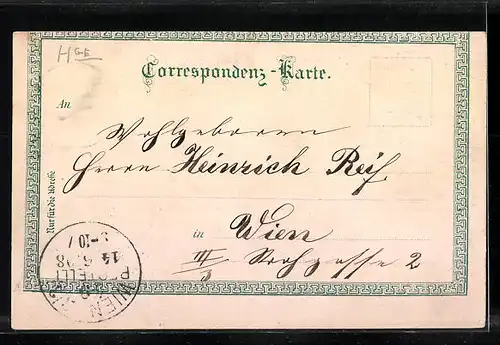 HGE
Correspondenz-Karte.
An
Wohlgeboren
Herrn Heinrich Reif
Nur für die Adresse
in Wien
III 2
WIEN
BESTELLT
14 6 98